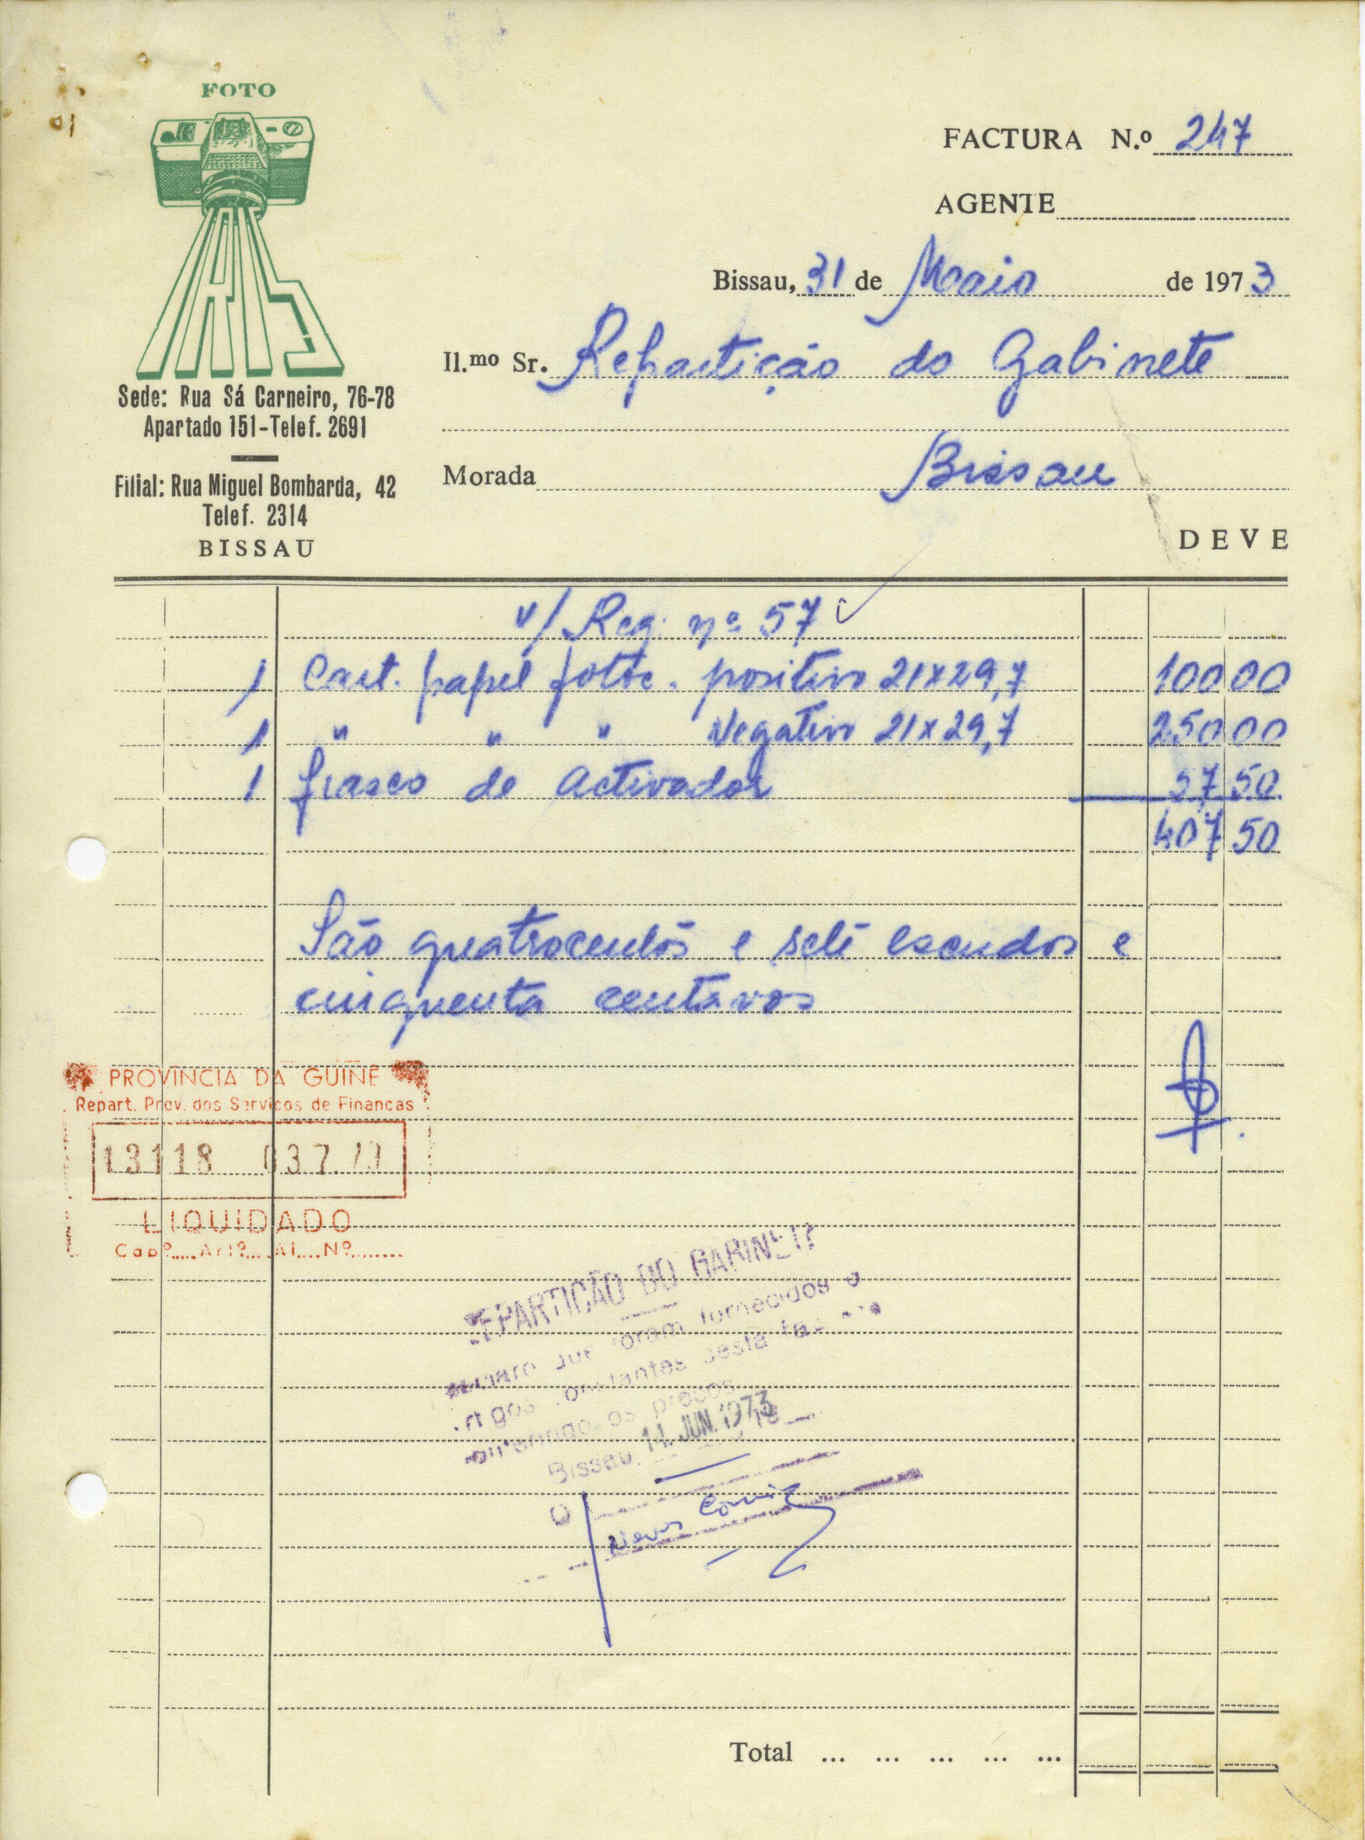 FOTO
IRIS
Sede: Rua Sá Carneiro, 76-78
Apartado 151-Telef. 2691
Filial: Rua Miguel Bombarda, 42
Telef. 2314
BISSAU
FACTURA N.º 247
AGENTE
Bissau, 31 de Maio de 1973
Il.mo Sr. Repartição do Gabinete
Morada Bissau
DEVE
v/ Req. nº 57
1 Cart. papel fotoc. positivo 21x29,7 100 00
1 " " " Negativo 21x29,7 250 00
1 frasco de activador 57 50
407 50
São quatrocentos e sete escudos e
cinquenta centavos
PROVINCIA DA GUINÉ
Repart. Prov. dos Serviços de Finanças
13118 03.7.73
LIQUIDADO
Capº.... Artº.... Al.... Nº.......
REPARTIÇÃO DO GABINETE
que foram fornecidos o
artigos constantes desta
os preços
Bissau, 14. JUN. 1973
O
Total ... ... ... ... ...